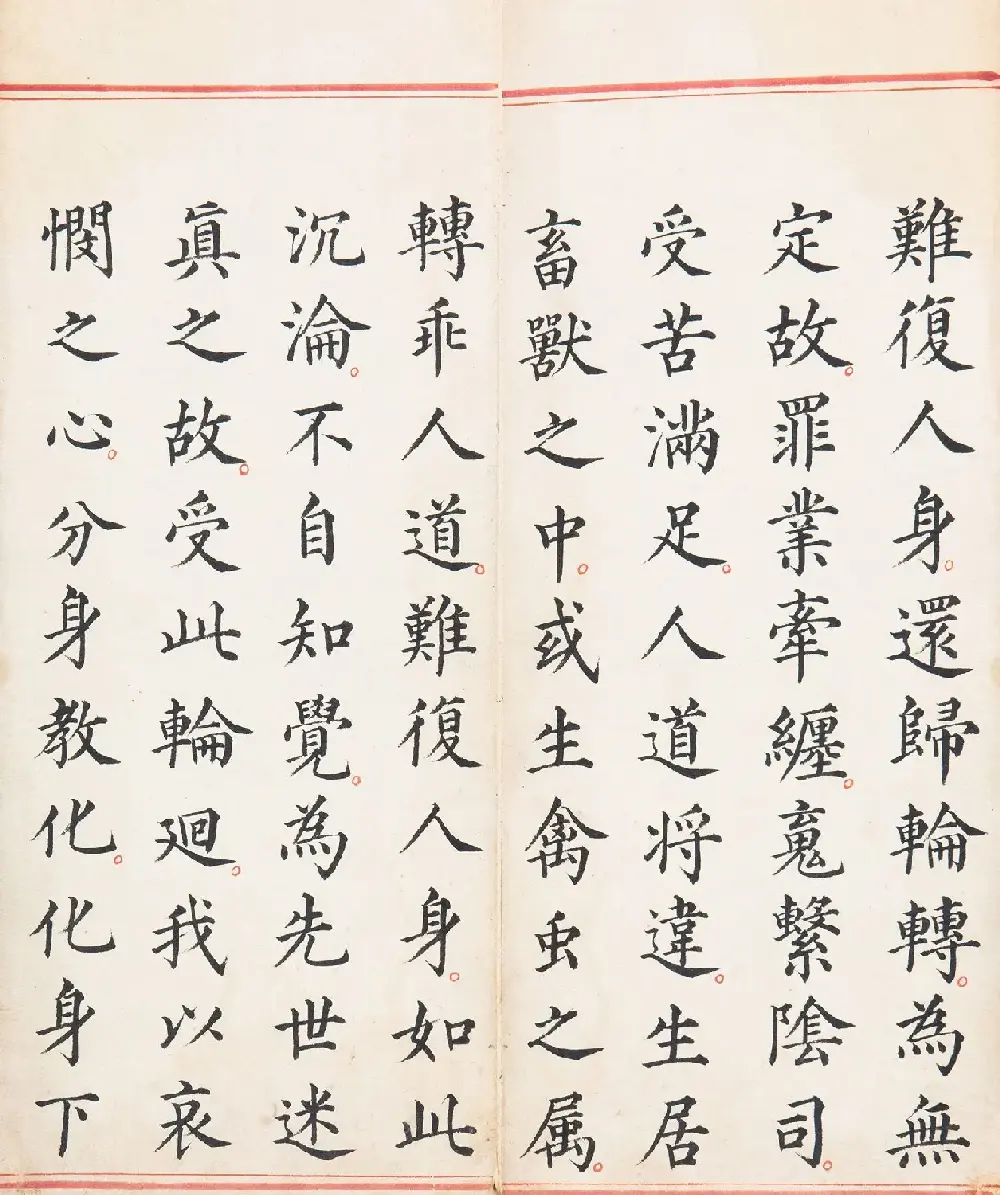 難復人身。還歸輪轉。為無
定故。罪業牽纏。魂繫陰司。
受苦滿足。人道将違。生居
畜獸之中。或生禽虫之属。
轉乖人道。難復人身。如此
沉淪。不自知覺。為先世迷
真之故。受此輪廻。我以哀
憫之心。分身教化。化身下